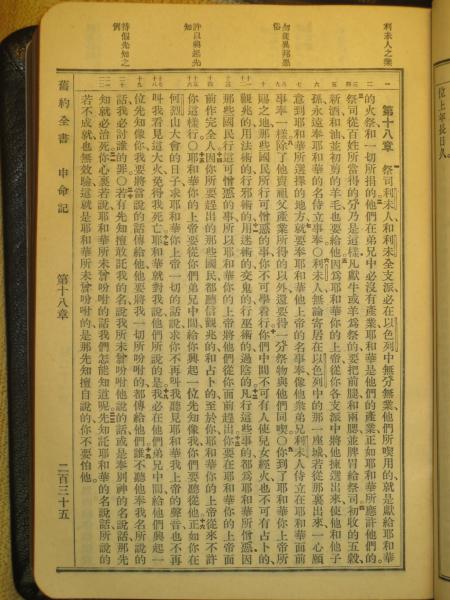 位上年長日久
利未人之業
勿從異邦惡俗
許以興起先知
待假先知之例
第十八章 祭司利未人和利未全支派必在以色列中無分無業他們所喫用的就是獻給耶和華
的火祭和一切所捐的他們在弟兄中必沒有產業耶和華是他們的產業正如耶和華所應許他們的。
祭司從百姓所當得的分乃是這樣凡獻牛或羊為祭的要把前腿和兩腮並脾胃給祭司初收的五穀、
新酒和油並初剪的羊毛也要給他因為耶和華你的上帝從你各支派中將他揀選出來使他和他子
孫永遠奉耶和華的名侍立事奉○利未人無論寄居在以色列中的那一座城若從那裏出來一心願
意到耶和華所選擇的地方就要奉耶和華他上帝的名事奉像他衆弟兄利未人侍立在耶和華面前
事奉一樣除了他賣祖父產業所得的以外還要得一分祭物與他們同喫○你到了耶和華你上帝所
賜之地那些國民所行可憎惡的事你不可學着行你們中間不可有人使兒女經火也不可有占卜的、
觀兆的用法術的行邪術的用迷術的交鬼的行巫術的過陰的凡行這些事的都為耶和華所憎惡因
那些國民行這可憎惡的事所以耶和華你的上帝將他們從你面前趕出你要在耶和華你的上帝面
前作完全人因你所要趕出的那些國民都聽信觀兆的和占卜的至於你耶和華你的上帝從來不許
你這樣行○耶和華你的上帝要從你們弟兄中間給你興起一位先知像我你們要聽從他正如你在
何烈山大會的日子求耶和華你上帝一切的話說求你不再叫我聽見耶和華我上帝的聲音也不再
叫我看見這大火免得我死亡耶和華就對我說他們所說的是我必在他們弟兄中間給他們興起一
位先知像你我要將當說的話傳給他他要將我一切所吩咐的都傳給他們誰不聽他奉我名所說的
話我必討誰的罪○若有先知擅敢託我的名說我所未曾吩咐他說的話或是奉別神的名說話那先
知就必治死你心裏若說耶和華所未曾吩咐的話我們怎能知道呢先知託耶和華的名說話所說的
若不成就也無效驗這就是耶和華所未曾吩咐的是那先知擅自說的你不要怕他。
舊約全書 申命記 第十八章 二百三十五